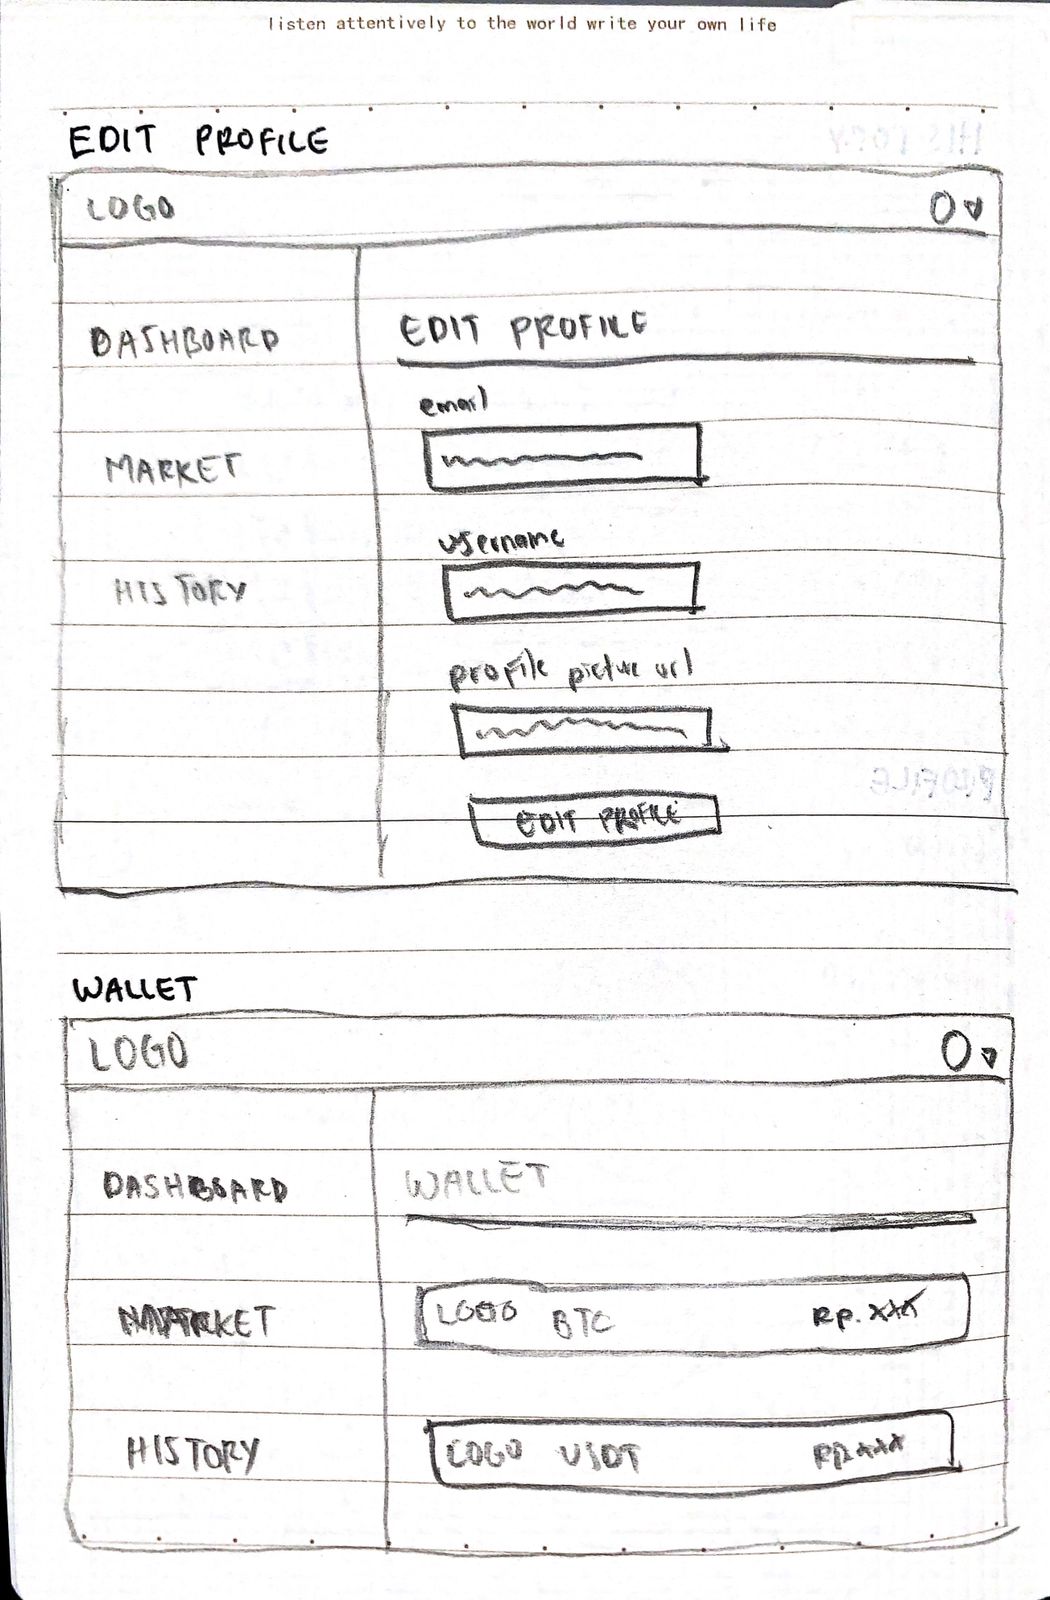 listen attentively to the world write your own life
EDIT PROFILE
LOGO
DASHBOARD
MARKET
HISTORY
EDIT PROFILE
email
username
profile picture url
EDIT PROFILE
WALLET
LOGO
DASHBOARD
MARKET
HISTORY
WALLET
LOGO BTC Rp.xxx
LOGO USDT Rp.xxx